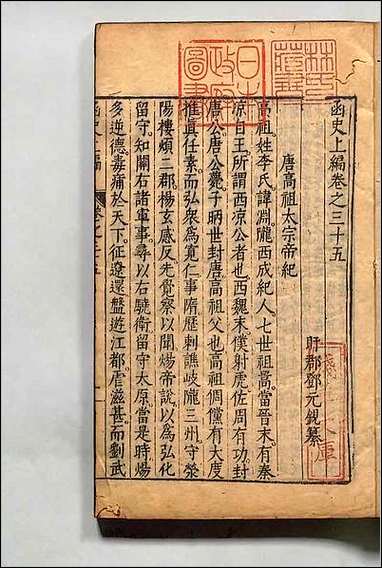 函史上編卷之三十五
盱郡鄧元錫纂
唐高祖太宗帝紀
高祖姓李氏諱淵隴西成紀人七世祖暠當晉末有秦
涼自王所謂西涼公者也西魏末僕射虎佐周有功封
唐公唐公薨子昞世封唐高祖父也高祖倜儻有大度
推眞任素而弘衆爲寬仁事隋歷刺譙岐隴三州守滎
陽樓煩二郡楊玄感反先覺察以聞煬帝說以爲弘化
留守知關右諸軍事尋以右驍衛留守太原當是時煬
多逆德毒痡於天下征遼還盤遊江都虐滋甚而劉武
林氏藏書
日本政府圖書